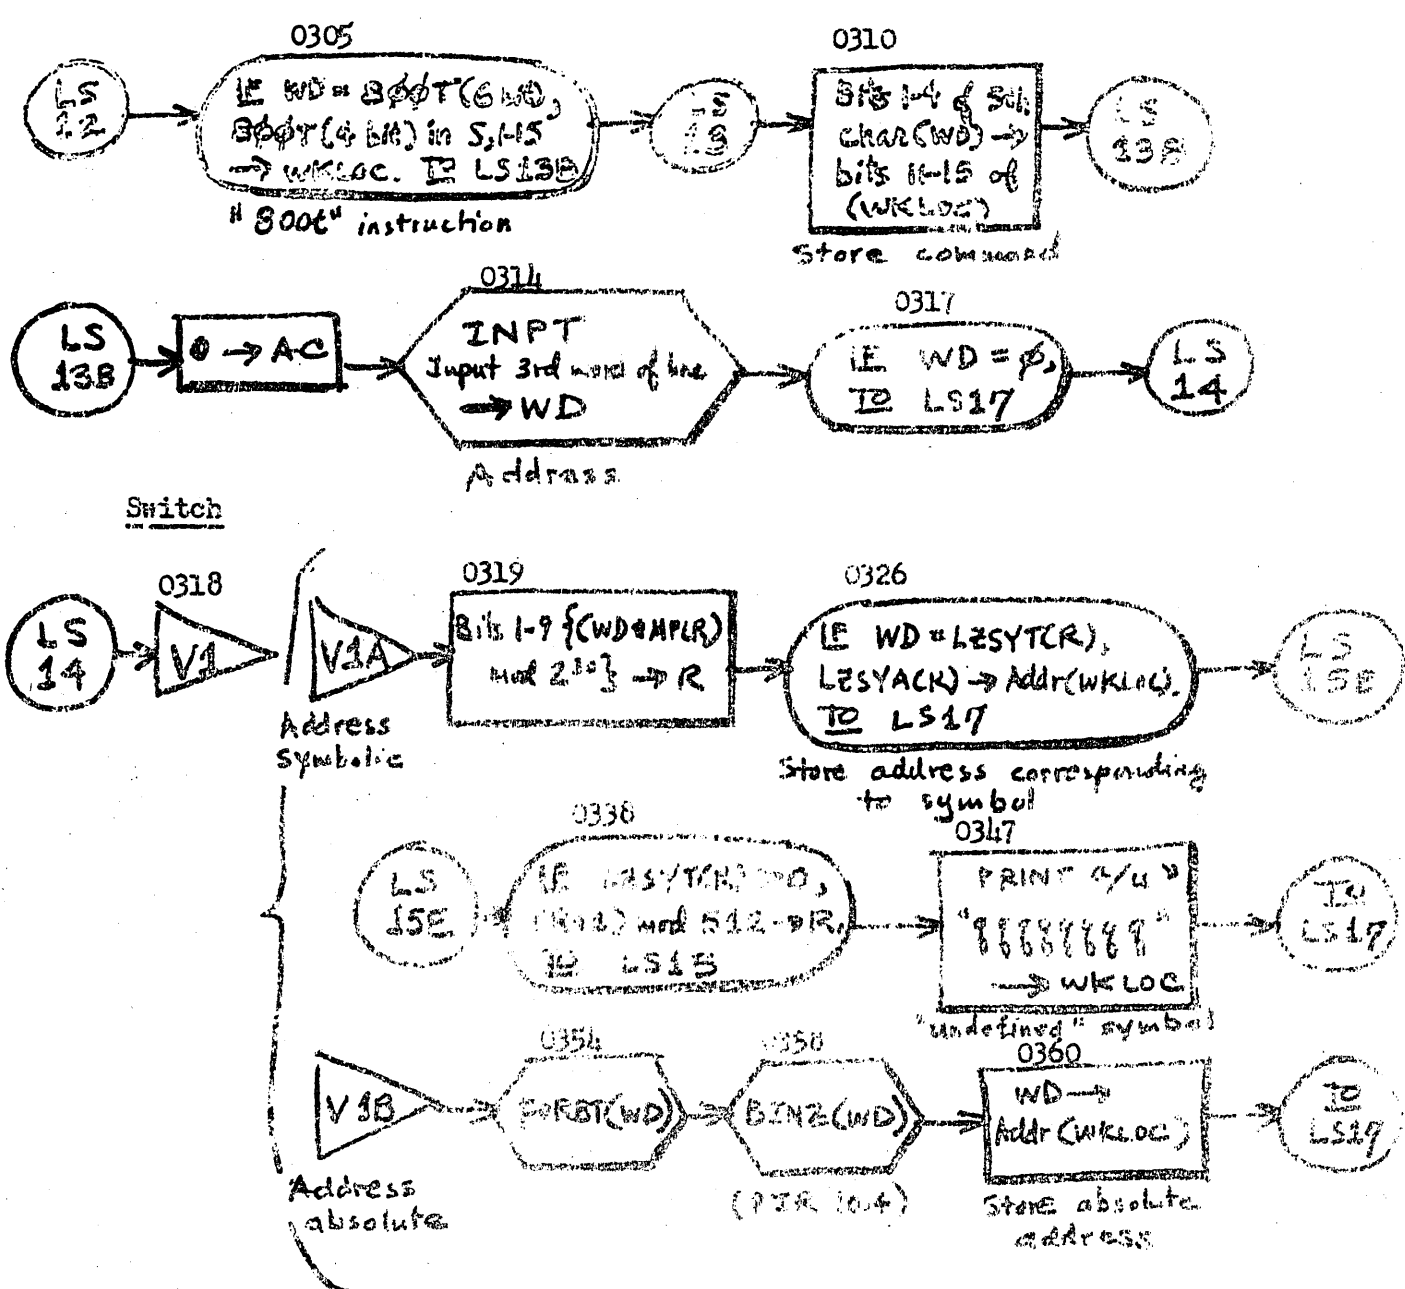 0305
0310
LS
12
IF WD = 8φφT(6 bit),
8φφT(4 bit) in S,1-15
→ WKLOC. TO LS13B
"800t" instruction
LS
13
Bits 1-4 of 5th
char(WD) →
bits 11-15 of
(WKLOC)
Store command
LS
13B
LS
13B
0 → AC
0314
INPT
Input 3rd word of line
→ WD
Address
0317
IF WD = φ,
TO LS17
LS
14
Switch
LS
14
0318
V1
V1A
Address
symbolic
0319
Bits 1-9 {(WD*MPLR)
mod 2} → R
0326
IF WD = LZSYT(R),
LZSYA(R) → Addr(WKLOC).
TO LS17
Store address corresponding
to symbol
LS
15E
LS
15E
0338
IF LZSYT(R) ≠ 0,
(R+1) mod 512 → R,
TO LS15
0347
PRINT "/u"
"88888888"
→ WKLOC
"undefined" symbol
TO
LS17
V1B
Address
absolute
0354
(WD)
0358
BINZ(WD)
(PIR 10.4)
0360
WD →
Addr(WKLOC)
Store absolute
address
TO
LS17